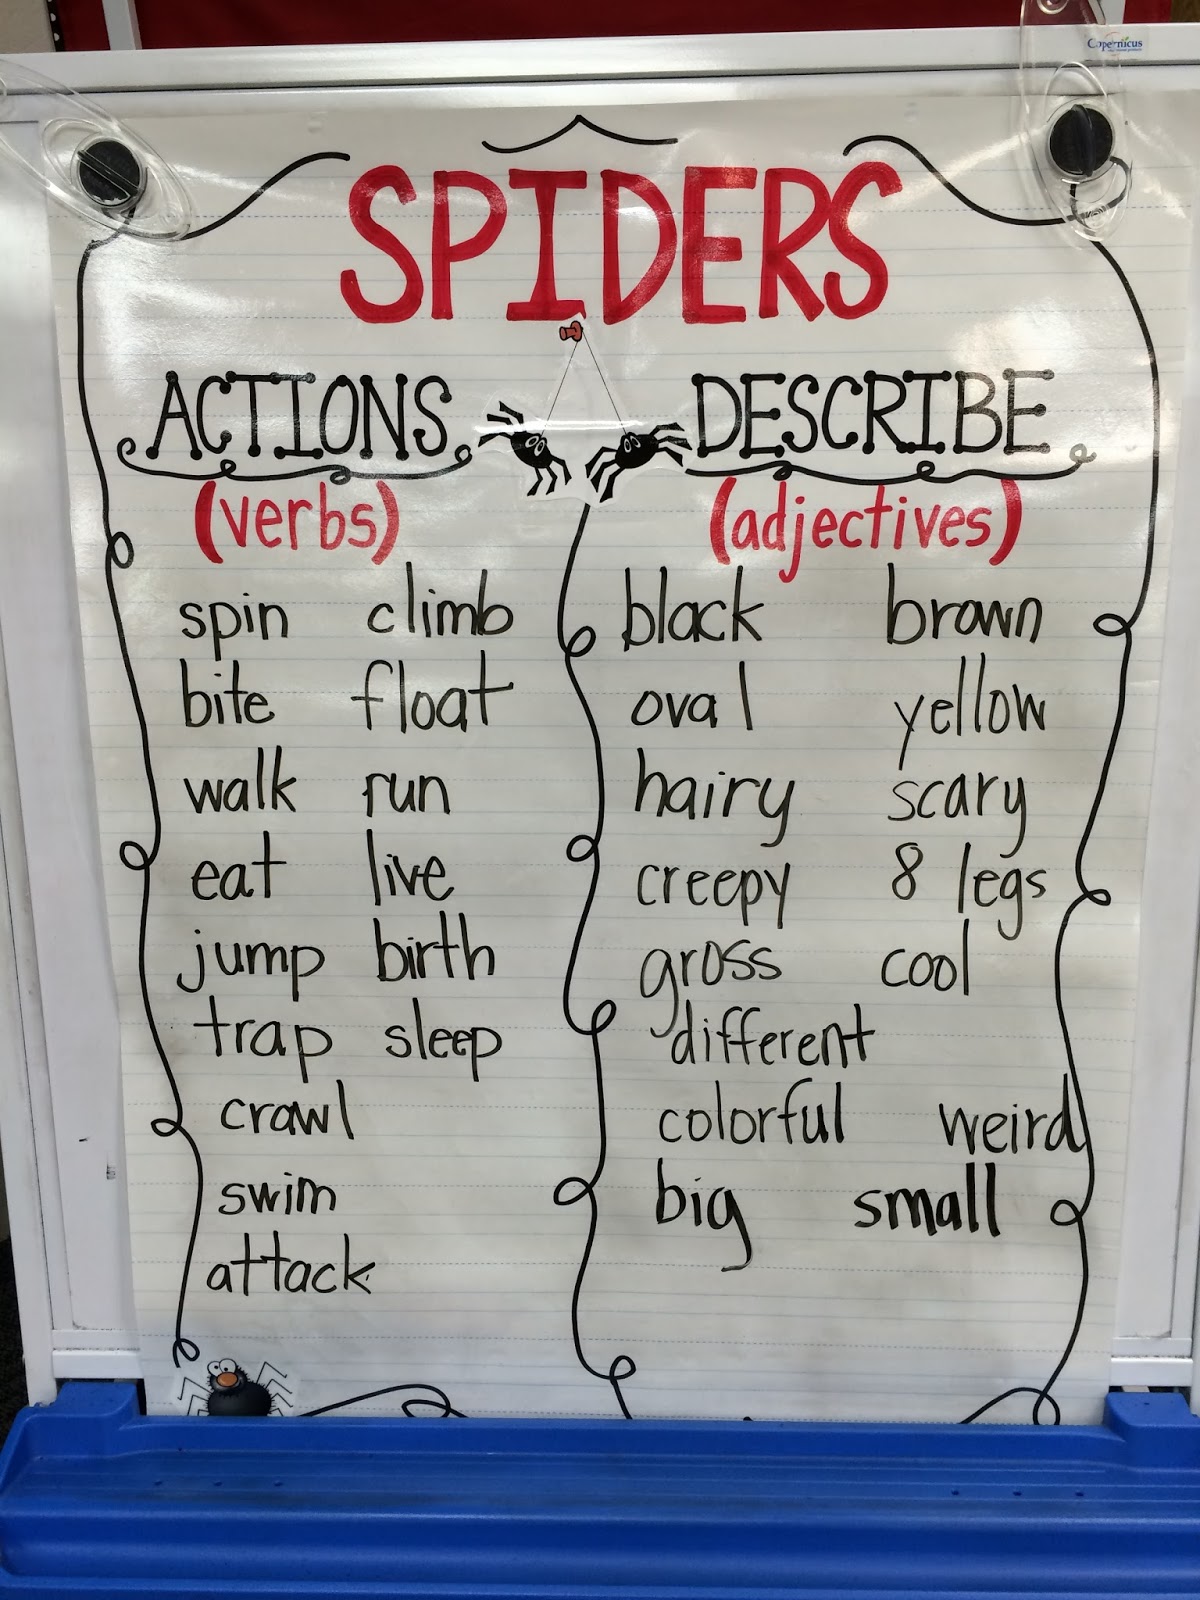 Copernicus
SPIDERS
ACTIONS
(verbs)
spin climb
bite float
walk run
eat live
jump birth
trap sleep
crawl
swim
attack
DESCRIBE
(adjectives)
black brown
oval yellow
hairy scary
creepy 8 legs
gross cool
different
colorful weird
big small